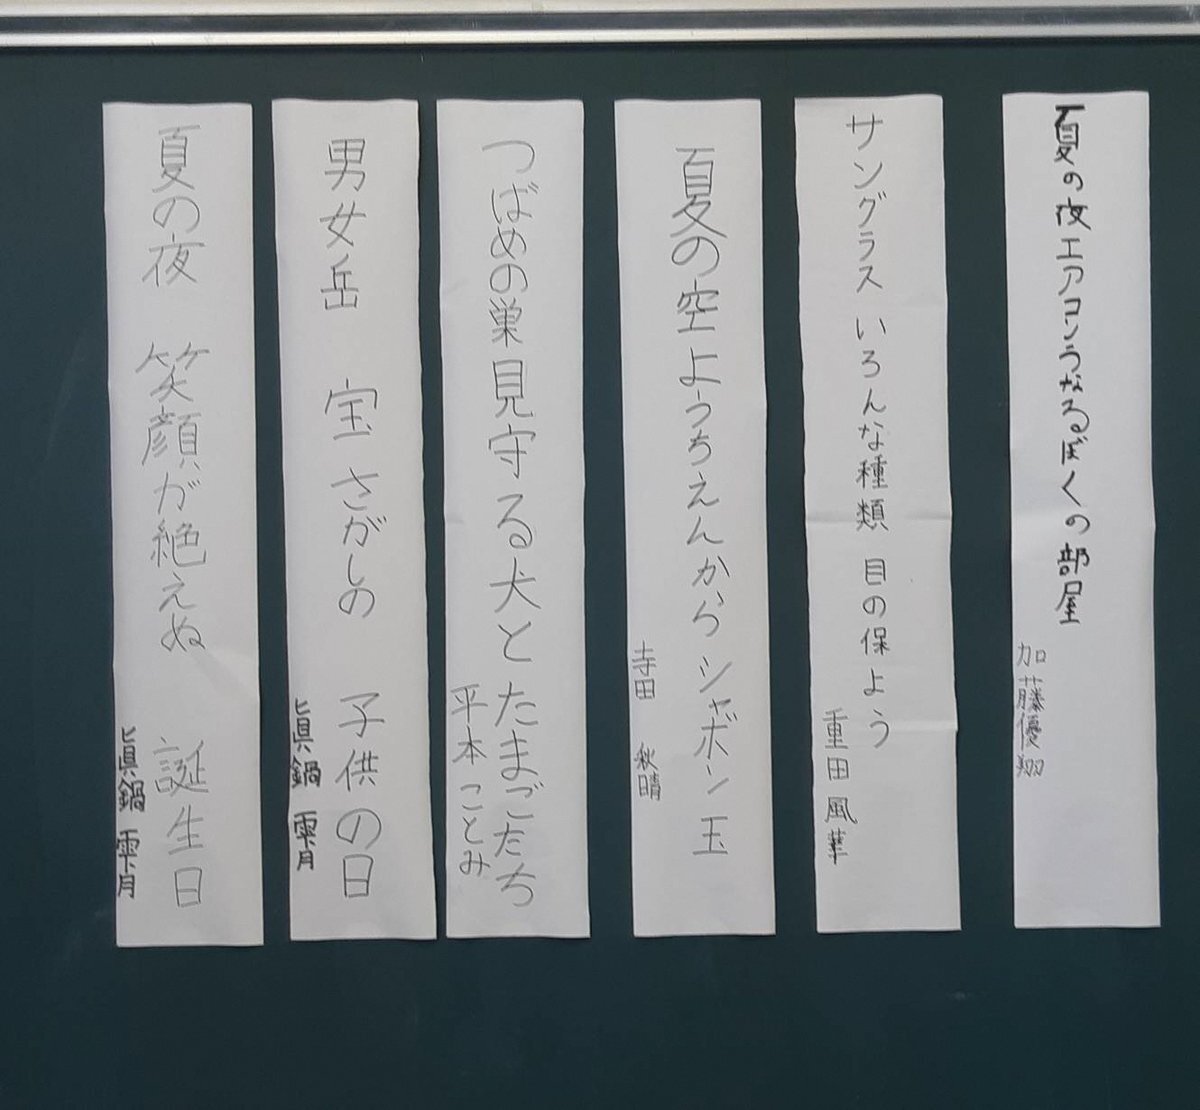 夏の夜エアコンうなるぼくの部屋
加藤優翔
サングラス いろんな種類 目の保よう
重田風華
夏の空ようちえんからシャボン玉
寺田 秋晴
つばめの巣見守る犬とたまごたち
平本ことみ
男女岳 宝さがしの 子供の日
眞鍋 雫月
夏の夜 笑顔が絶えぬ 誕生日
眞鍋 雫月